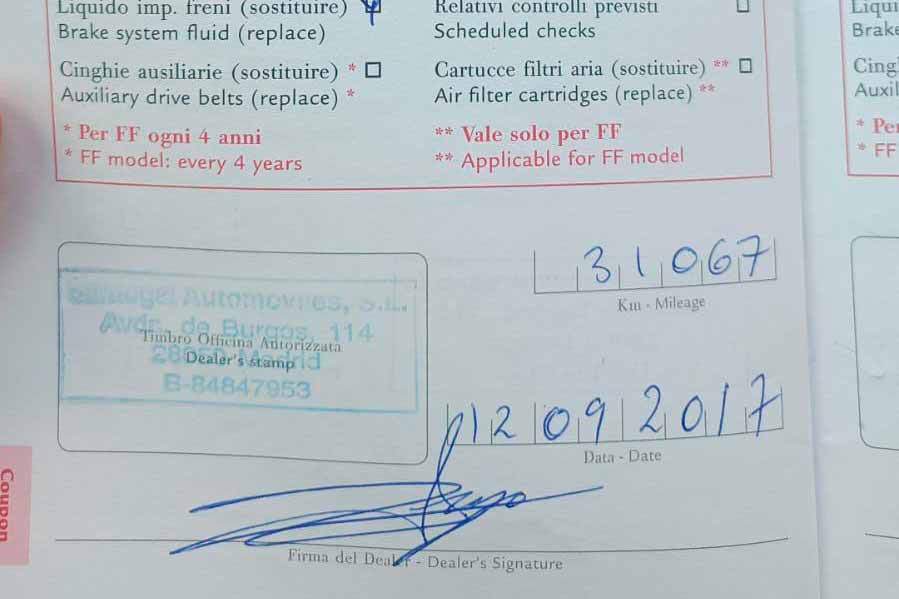 Liquido imp. freni (sostituire)
Brake system fluid (replace)
Cinghie ausiliarie (sostituire) *
Auxiliary drive belts (replace) *
* Per FF ogni 4 anni
* FF model: every 4 years
Relativi controlli previsti
Scheduled checks
Cartucce filtri aria (sostituire) **
Air filter cartridges (replace) **
** Vale solo per FF
** Applicable for FF model
Automoviles, S.L.
Avda. de Burgos, 114
Timbro Officina Autorizzata
Madrid
Dealer's stamp
B-84847953
31067
Km - Mileage
12 09 2017
Data - Date
Firma del Dealer - Dealer's Signature
Coupon
Brake
* FF